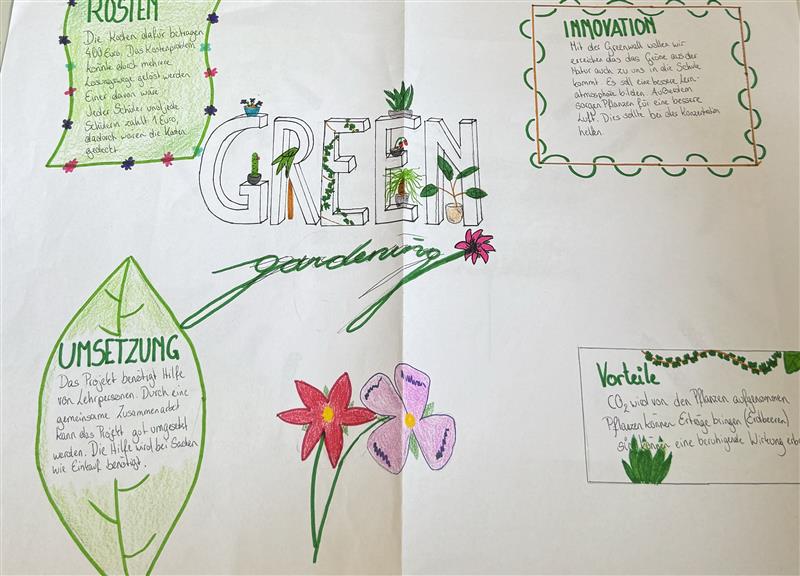 KOSTEN
Die Kosten dafür betragen
400 Euro. Das Kostenproblem
könnte durch mehrere
Lösungswege gelöst werden
Einer davon wäre
Jeder Schüler und jede
Schülerin zahlt 1 Euro,
dadurch wären die Kosten
gedeckt
INNOVATION
Mit der Greenwall wollen wir
erreichen das das Grüne aus der
Natur auch zu uns in die Schule
kommt. Es soll eine bessere Lern-
atmosphäre bilden. Außerdem
sorgen Pflanzen für eine bessere
Luft. Dies sollte bei das Konzentration
helfen.
GREEN
gardening
UMSETZUNG
Das Projekt benötigt Hilfe
von Lehrpersonen. Durch eine
gemeinsame Zusammenarbeit
kann das Projekt gut umgesetzt
werden. Die Hilfe wird bei Sachen
wie Einkauf benötigt.
Vorteile
CO2 wird von den Pflanzen aufgenommen
Pflanzen können Erträge bringen (Erdbeeren)
können eine beruhigende Wirkung